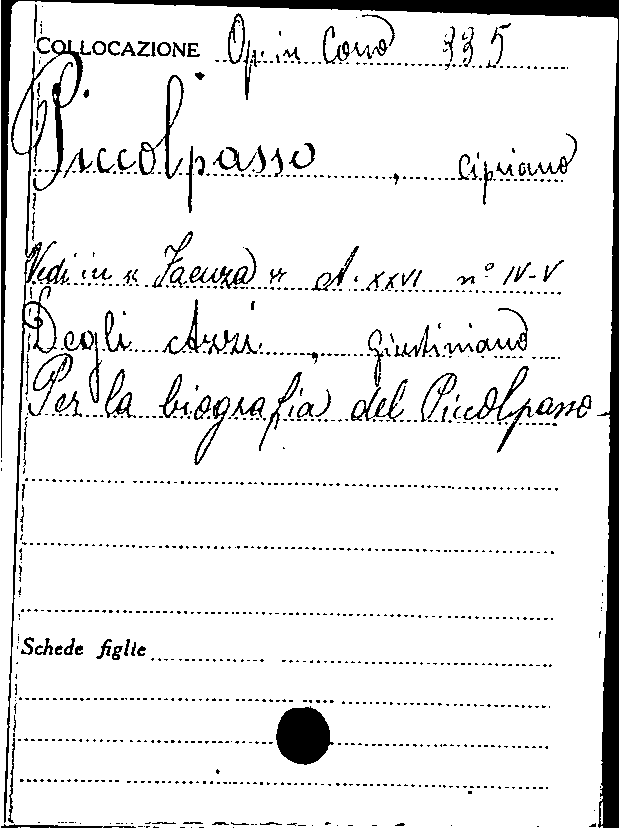 COLLOCAZIONE Op. in Corso 335
Piccolpasso, Cipriano
Vedi in « Faenza » A. XXVI n° IV-V
Degli Azzi, Giustiniano
Per la biografia del Piccolpasso-
Schede figlie